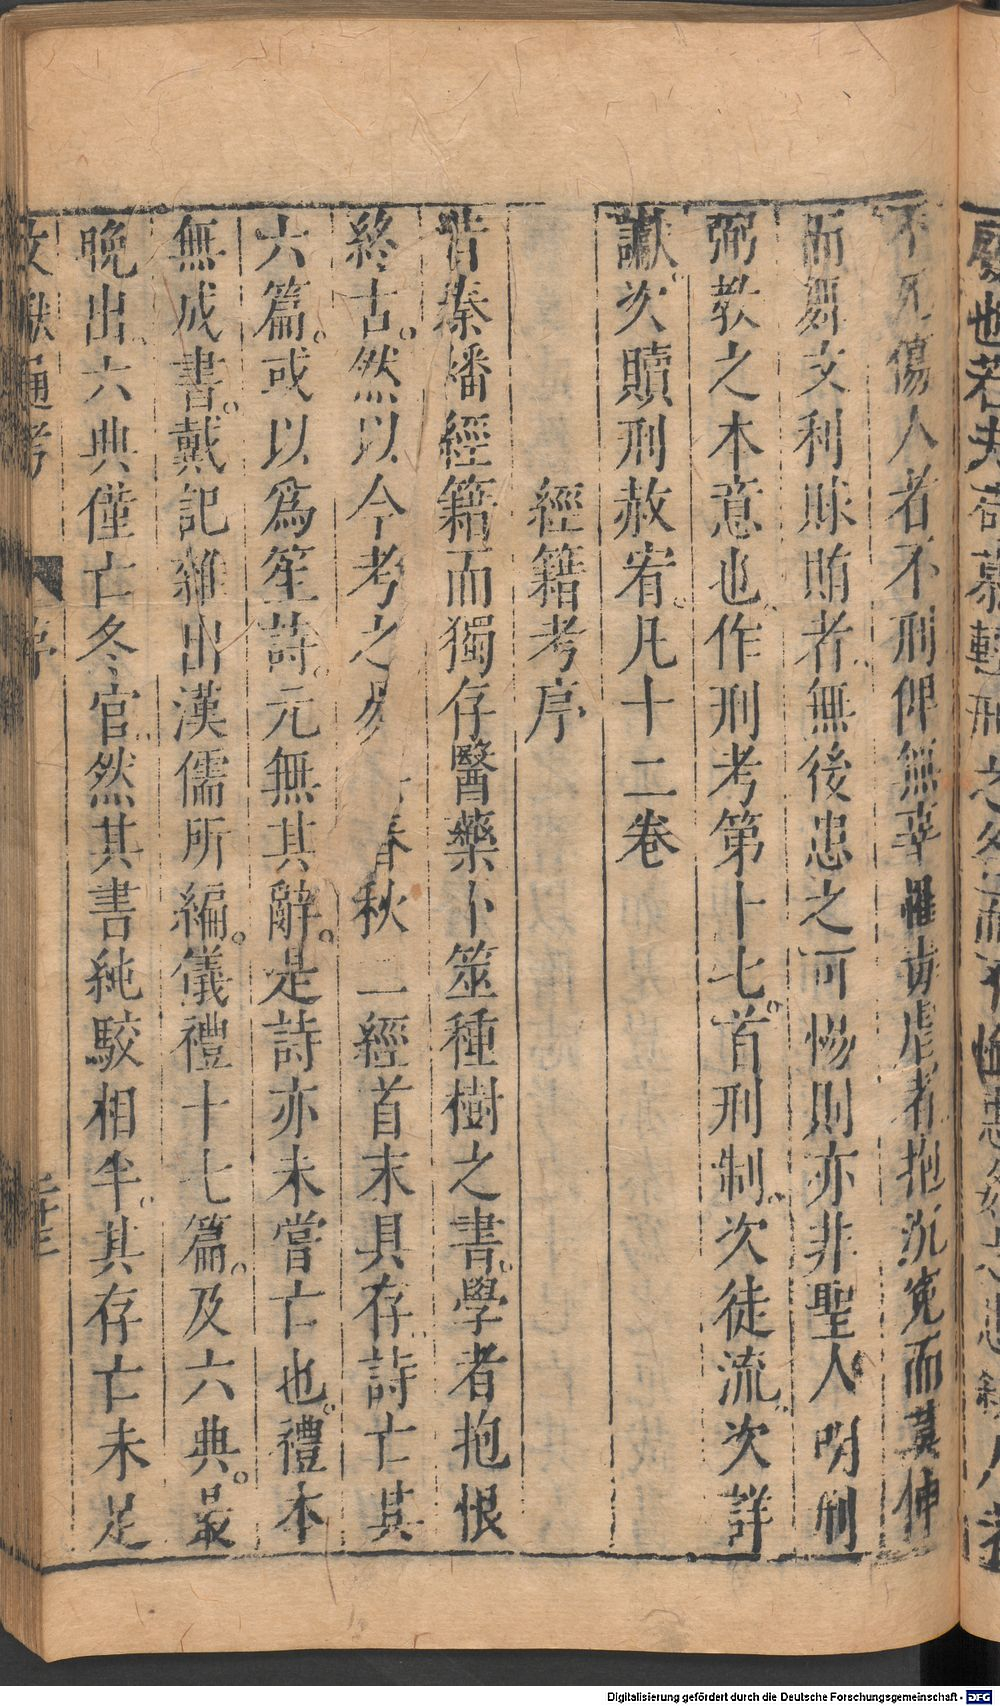 不死傷人者不刑俾無辜罹毒虐者抱沉冤而莫伸
而舞文利賕賄者無後患之可惕則亦非聖人明刑
弼教之本意也作刑考第十七首刑制次徒流次詳
讞次贖刑赦宥凡十二卷
經籍考序
昔秦燔經籍而獨存醫藥卜筮種樹之書學者抱恨
終古然以今考之易春秋二經首末具存詩亡其
六篇或以為笙詩元無其辭是詩亦未嘗亡也禮本
無成書戴記雜出漢儒所編儀禮十七篇及六典最
晚出六典僅亡冬官然其書純駁相半其存亡未足
Digitalisierung gefördert durch die Deutsche Forschungsgemeinschaft - DFG